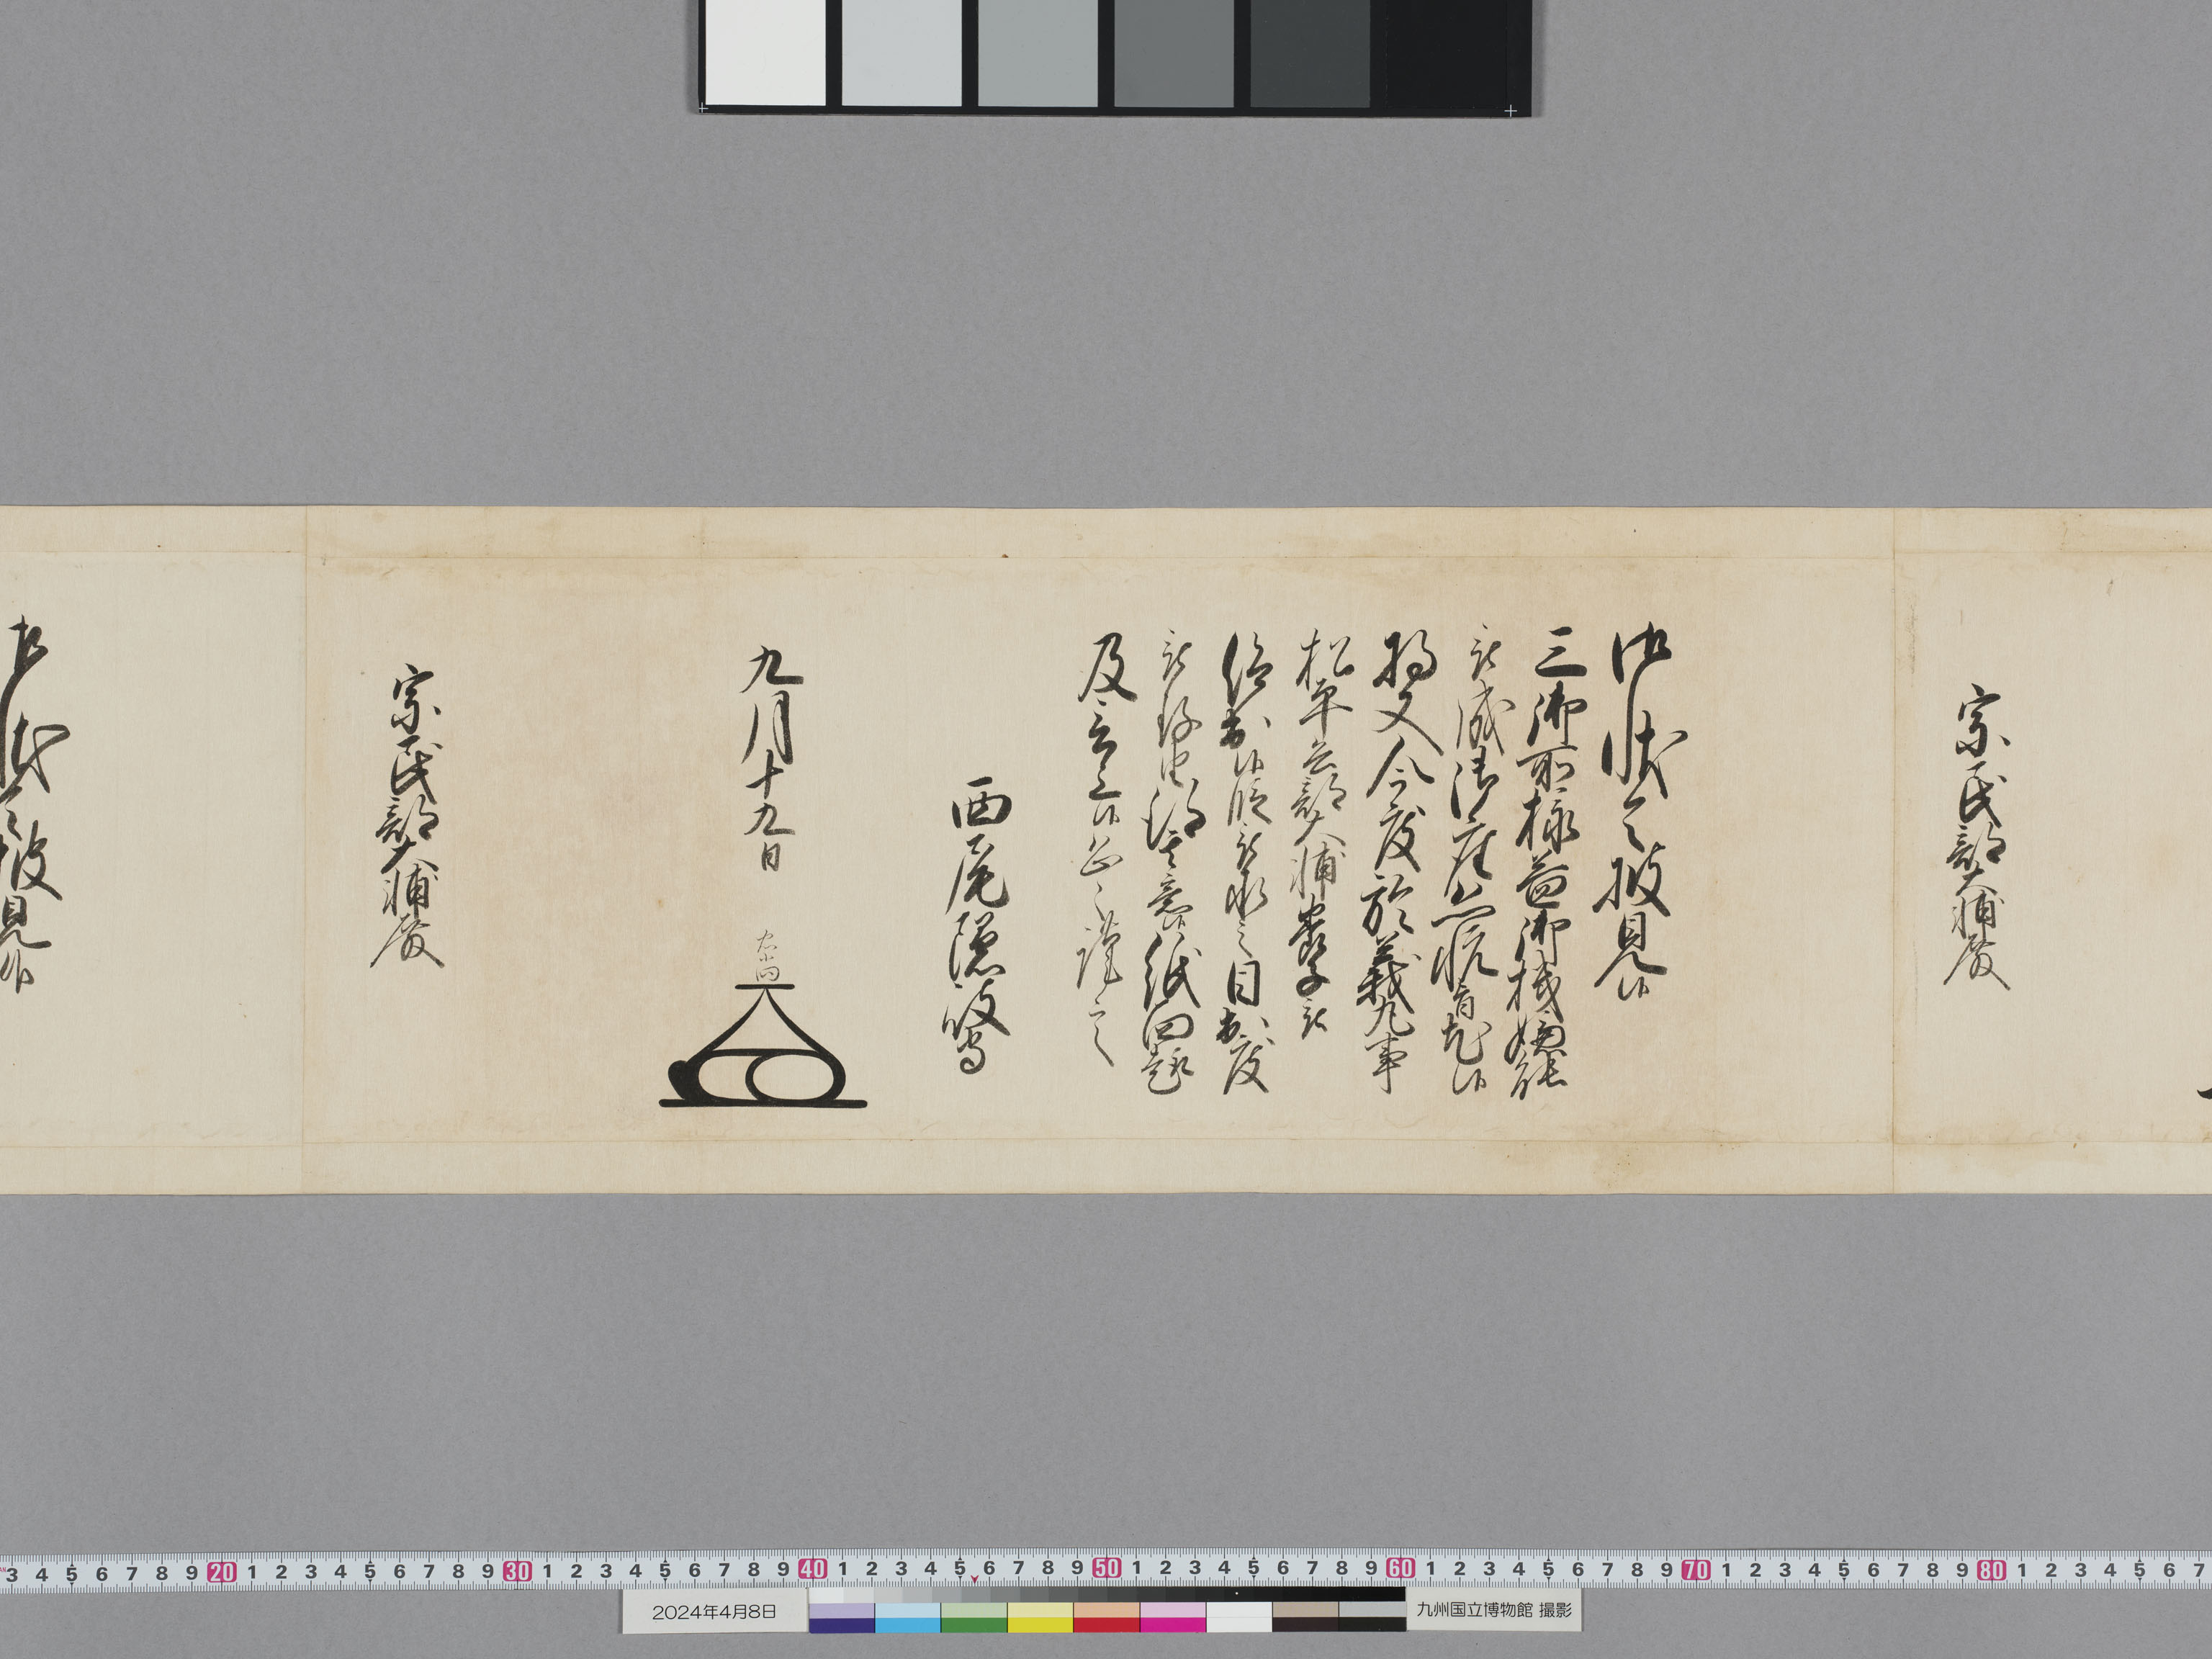 宗民部大輔殿
御状令披見候
三御所様益御機嫌能
被成御座恐悦旨尤候
将又今度於義九事
松平兵部大輔養子被
仰出候段被承之目出度
被存由得其意候紙面趣
及言上候恐々謹言
西尾隠岐守
九月十九日
忠尚
宗民部大輔殿
御状令披見候
3 4 5 6 7 8 9 20 1 2 3 4 5 6 7 8 9 30 1 2 3 4 5 6 7 8 9 40 1 2 3 4 5 6 7 8 9 50 1 2 3 4 5 6 7 8 9 60 1 2 3 4 5 6 7 8 9 70 1 2 3 4 5 6 7 8 9 80 1 2 3 4 5 6 7
2024年4月8日
九州国立博物館 撮影